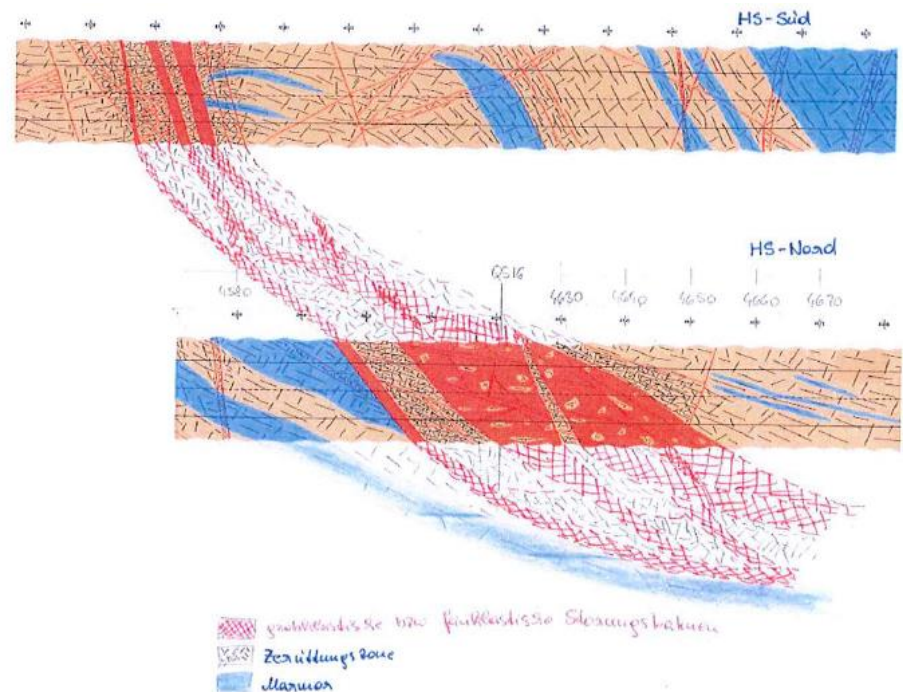 HS-Süd
HS-Nord
QS16
4580 4630 4640 4650 4660 4670
grobklastische bzw feinklastische Störungsbahnen
Zerrüttungszone
Marmor